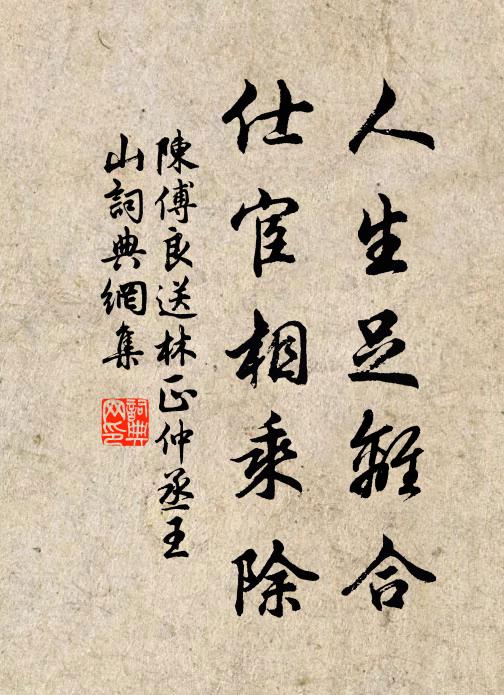 人生足離合
仕宦相乘除
陳傅良送林正仲丞王
山詞典網集
詞典
网印